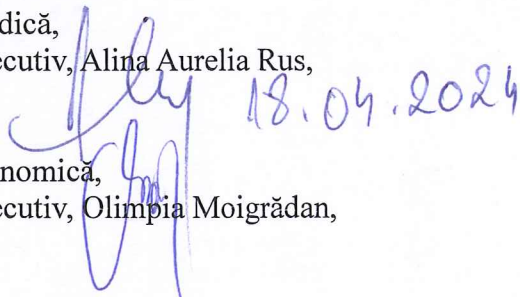 dică,
ecutiv, Alina Aurelia Rus,
18.04.2024
nomică,
ecutiv, Olimpia Moigrădan,